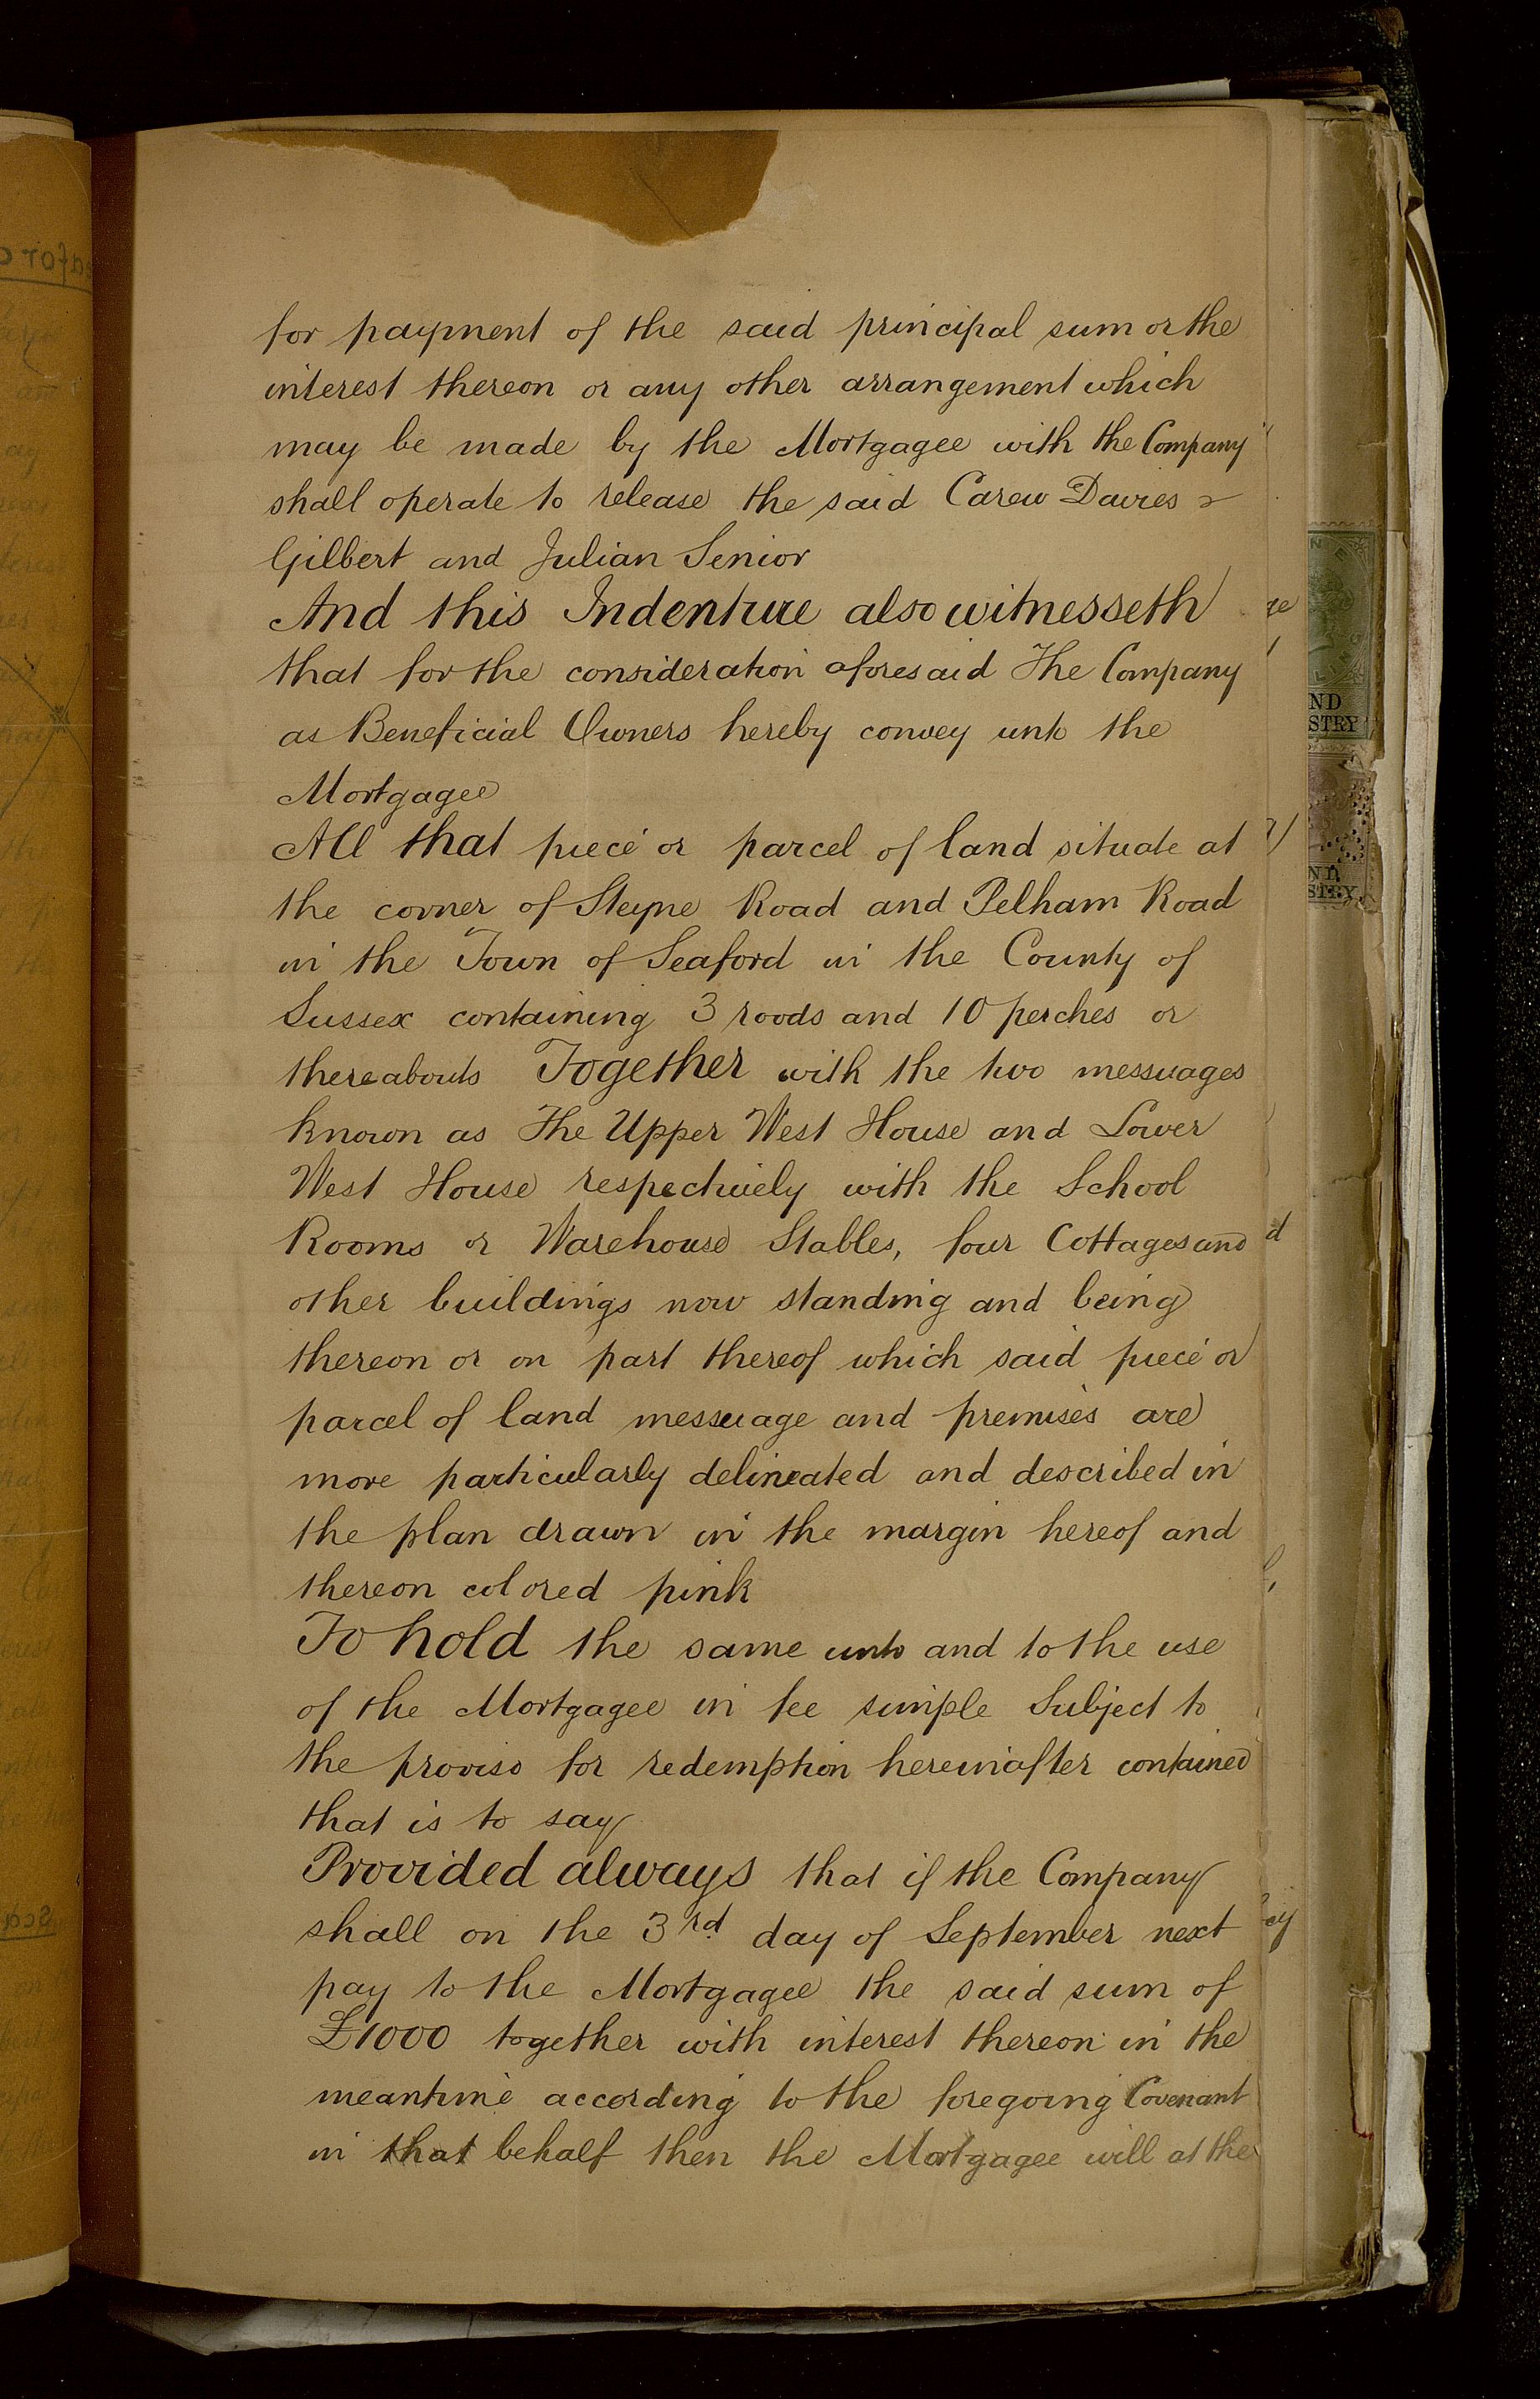 for payment of the said principal sum or the
interest thereon or any other arrangement which
may be made by the Mortgagee with the Company
shall operate to release the said Carew Davies
Gilbert and Julian Senior
And this Indenture also witnesseth
that for the consideration aforesaid The Company
as Beneficial Owners hereby convey unto the
Mortgagee
All that piece or parcel of land situate at
the corner of Steyne Road and Pelham Road
in the Town of Seaford in the County of
Sussex containing 3 roods and 10 perches or
thereabouts Together with the two messuages
known as The Upper West House and Lower
West House respectively with the School
Rooms or Warehouse Stables, four Cottages and
other buildings now standing and being
thereon or on part thereof which said piece or
parcel of land messuage and premises are
more particularly delineated and described in
the plan drawn in the margin hereof and
thereon colored pink
To hold the same unto and to the use
of the Mortgagee in fee simple Subject to
the proviso for redemption hereinafter contained
that is to say
Provided always that if the Company
shall on the 3rd day of September next
pay to the Mortgagee the said sum of
£1000 together with interest thereon in the
meantime according to the foregoing Covenant
in that behalf then the Mortgagee will at the